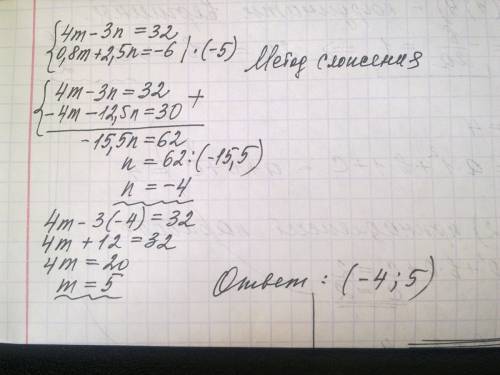 4m-3n=32
0,8m+2,5n=-6 | ·(-5)
Метод сложения
4m-3n=32
-4m-12,5n=30 +
-15,5n=62
n=62:(-15,5)
n=-4
4m-3(-4)=32
4m+12=32
4m=20
m=5
Ответ: (-4;5)